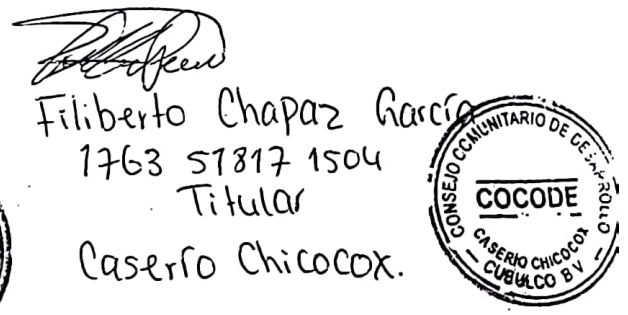 Filiberto Chapaz García
1763 57817 1504
Titular
Caserío Chicocox.
CONSEJO COMUNITARIO DE DESARROLLO
COCODE
CASERIO CHICOCOX
CUBULCO B V